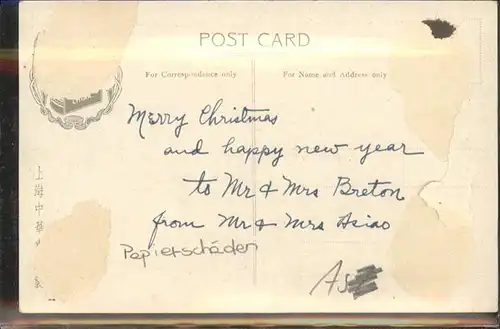 POST CARD
For Correspondence only
For Name and Address only
Merry Christmas
and happy new year
to Mr & Mrs Breton
from Mr & Mrs Asiao
Papierschäden
上海中華